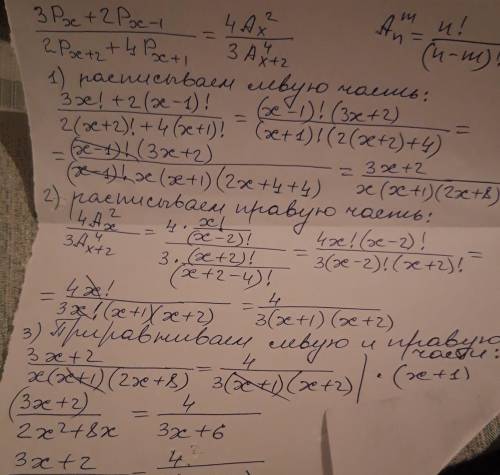 (3P_x + 2P_{x-1}) / (2P_{x+2} + 4P_{x+1}) = 4A_x^2 / 3A_{x+2}^4    A_n^m = n! / (n-m)!
1) расписываем левую часть:
(3x! + 2(x-1)!) / (2(x+2)! + 4(x+1)!) = (x-1)! (3x+2) / (x+1)! (2(x+2)+4) =
= (x-1)! (3x+2) / (x-1)! x(x+1)(2x+4+4) = (3x+2) / x(x+1)(2x+8)
2) расписываем правую часть:
4A_x^2 / 3A_{x+2}^4 = (4 · x! / (x-2)!) / (3 · (x+2)! / (x+2-4)!) = 4x! (x-2)! / 3(x-2)! (x+2)! =
= 4x! / 3x! (x+1)(x+2) = 4 / 3(x+1)(x+2)
3) Приравниваем левую и правую
части:
(3x+2) / x(x+1)(2x+8) = 4 / 3(x+1)(x+2) | · (x+1)
(3x+2) / (2x²+8x) = 4 / (3x+6)
3x+2    4